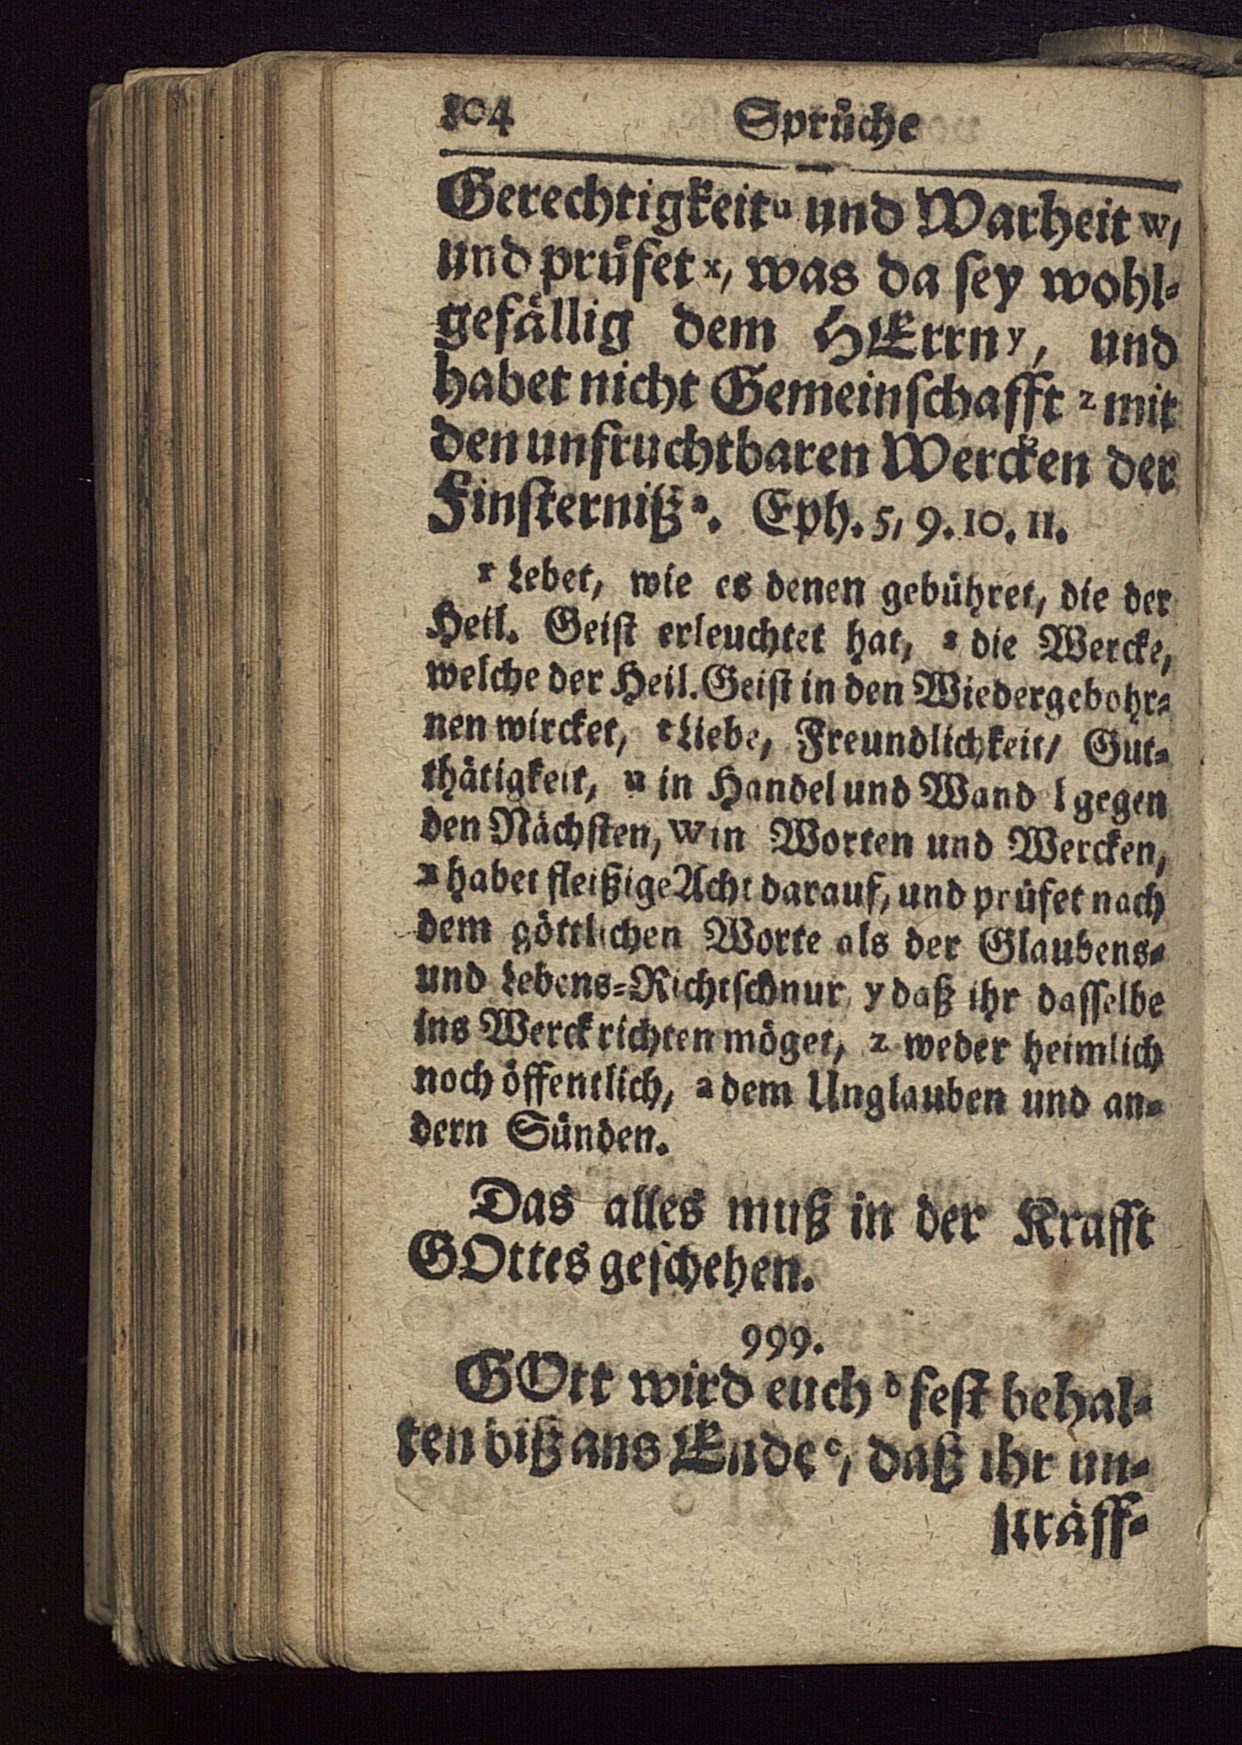 804 Sprüche
Gerechtigkeit u und Warheit w,
und prüfet x, was da sey wohl-
gefällig dem HErrn y, und
habet nicht Gemeinschafft z mit
den unfruchtbaren Wercken der
Finsterniß a. Eph. 5, 9. 10. 11.
r Lebet, wie es denen gebühret, die der
Heil. Geist erleuchtet hat, s die Wercke,
welche der Heil. Geist in den Wiedergebohr-
nen wircket, t Liebe, Freundlichkeit/ Gut-
thätigkeit, u in Handel und Wand l gegen
den Nächsten, w in Worten und Wercken,
x habet fleißige Acht darauf, und prüfet nach
dem göttlichen Worte als der Glaubens-
und Lebens-Richtschnur y daß ihr dasselbe
ins Werck richten möget, z weder heimlich
noch öffentlich, a dem Unglauben und an-
dern Sünden.
Das alles muß in der Krafft
GOttes geschehen.
999.
GOtt wird euch b fest behal-
ten biß ans Ende c, daß ihr un-
sträff-